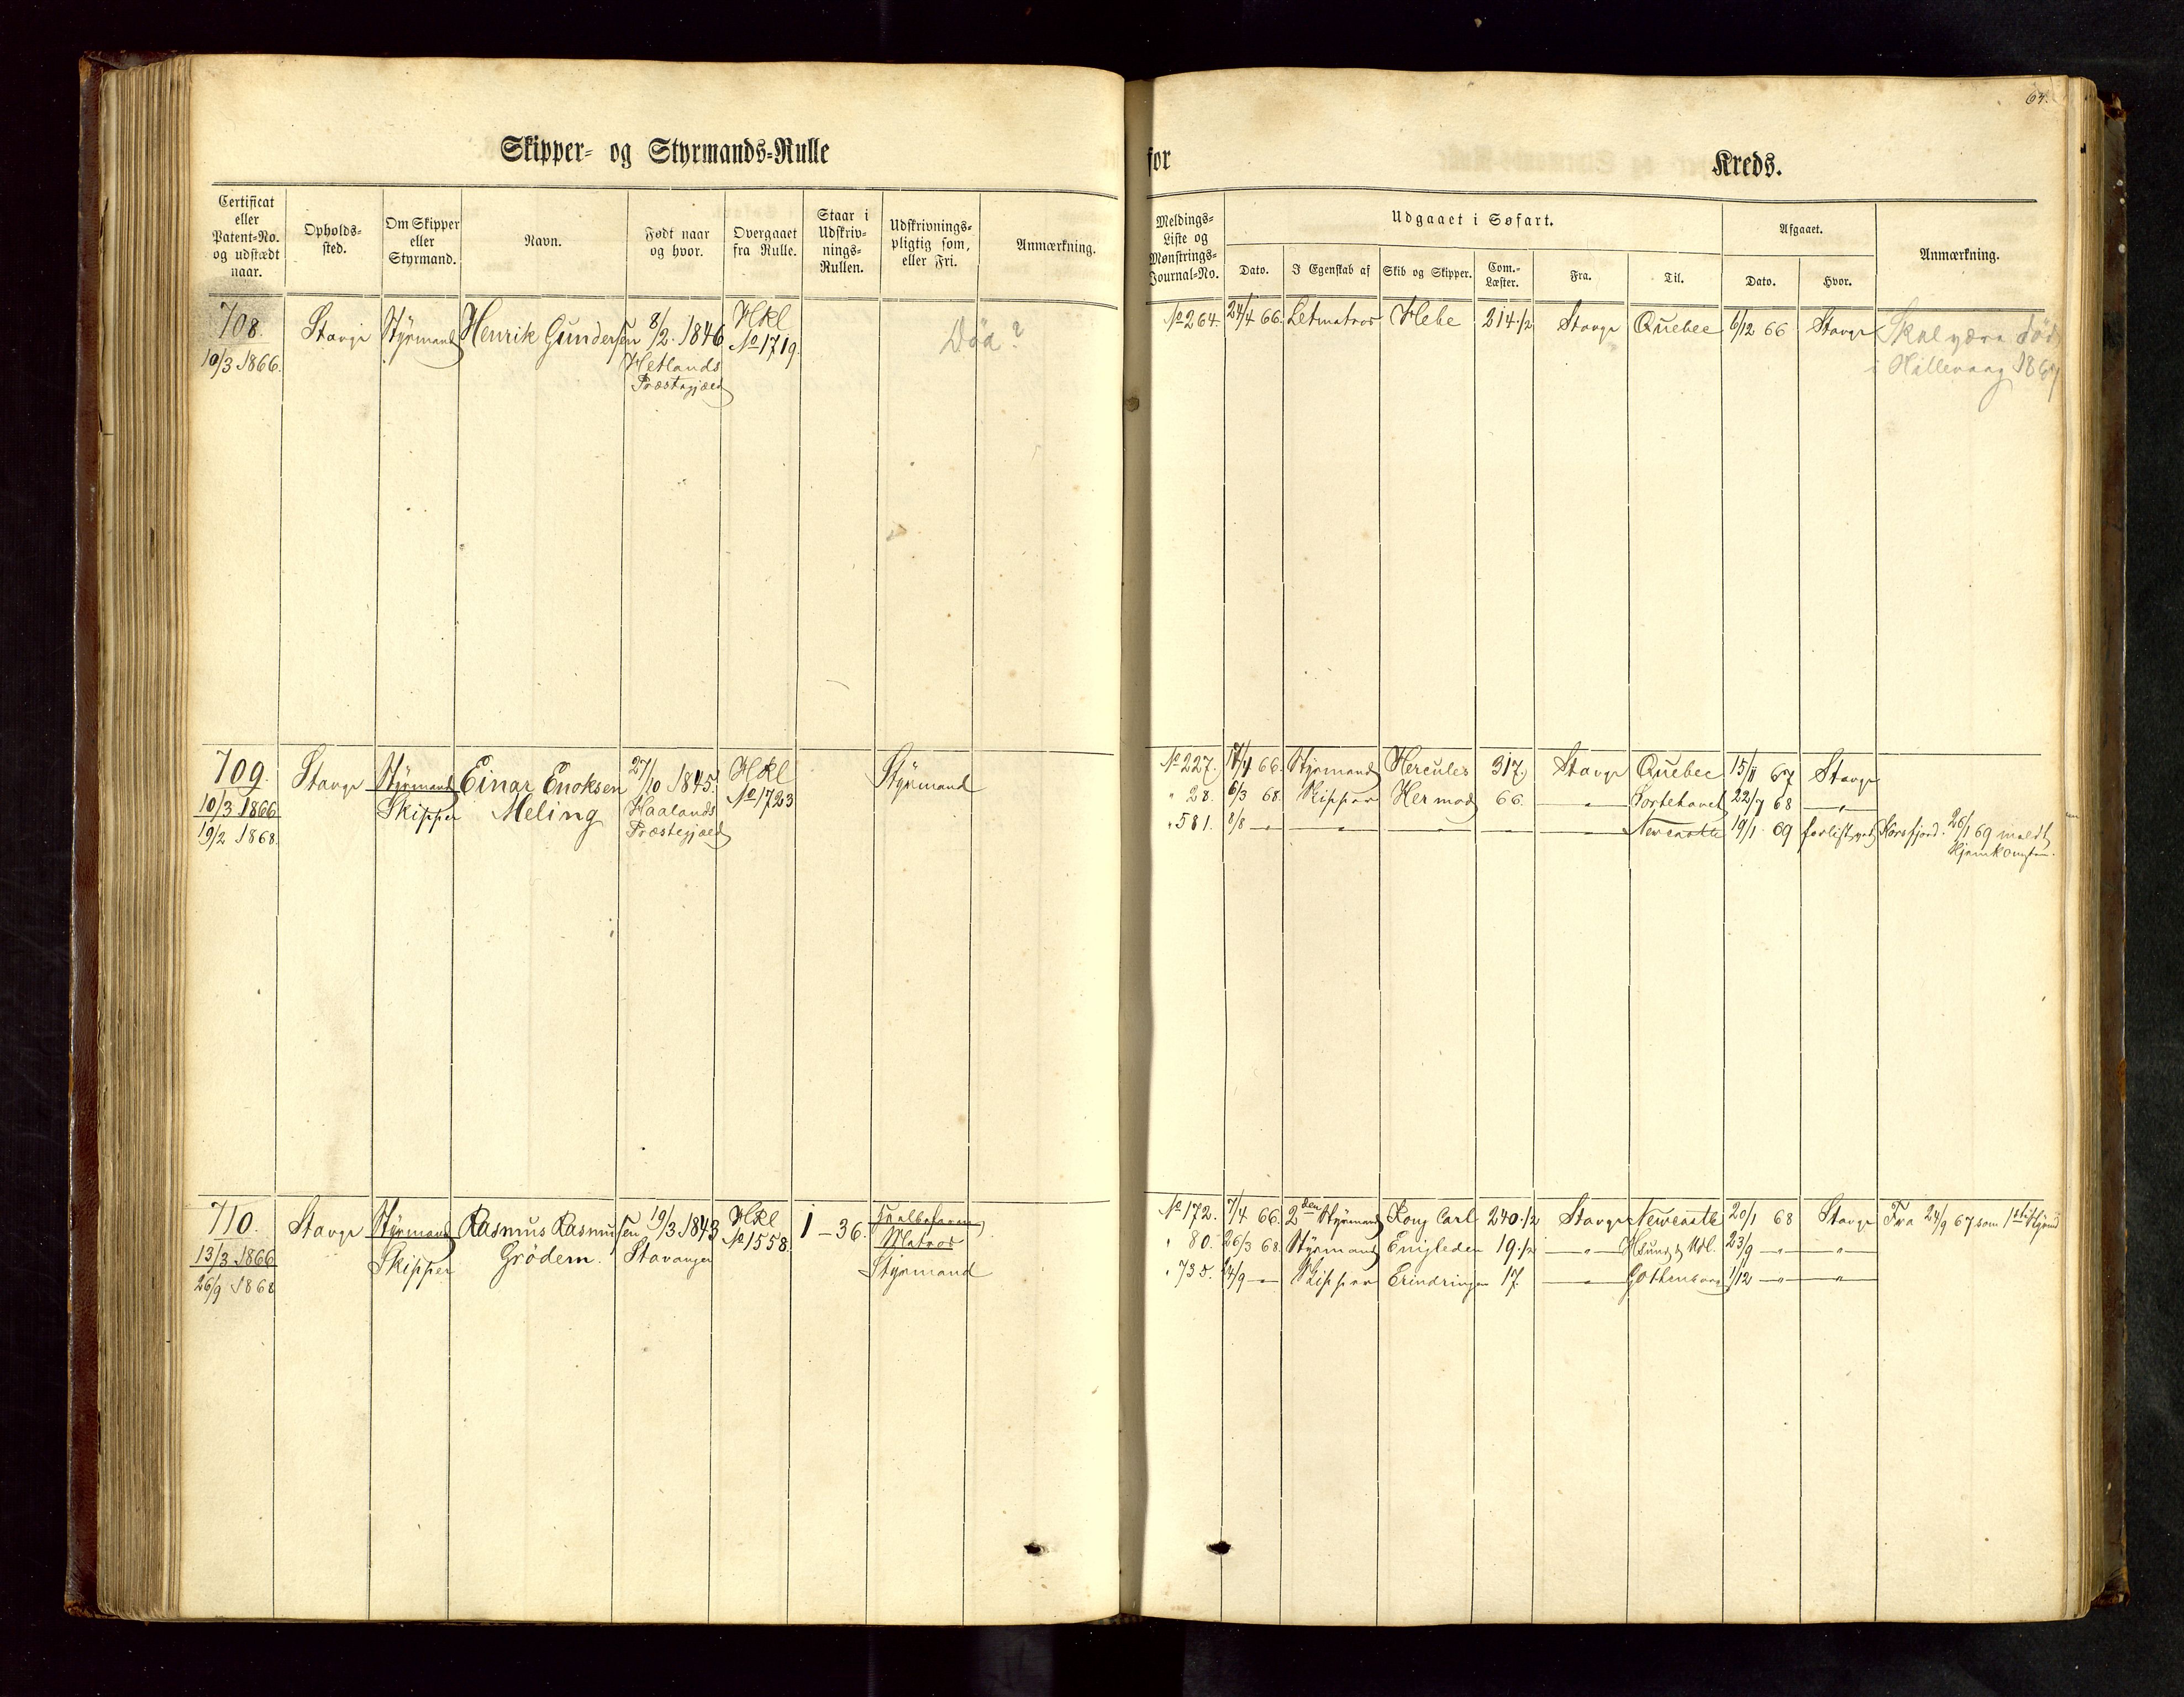 64.
Skipper- og Styrmands-Rulle
for Kreds.
Certificat eller Patent-No. og udstædt naar.
Opholds-sted.
Om Skipper eller Styrmand.
Navn.
Født naar og hvor.
Overgaaet fra Rulle.
Staar i Udskriv-nings-Rullen.
Udskrivnings-pligtig som, eller Fri.
Anmærkning.
Meldings-Liste og Mønstrings-Journal-No.
Udgaaet i Søfart.
Dato.
I Egenskab af
Skib og Skipper.
Com.-Læster.
Fra.
Til.
Afgaaet.
Dato.
Hvor.
Anmærkning.
708. Stavgr Styrmand Henrik Gundersen 8/2. 1846 Hkl Död?
10/3 1866. Hetlands No 1719.
Præstegjæld
No 264. 24/4 66. Letmatros Hebe 214.1/2 Stavgr Quebec 6/12 66 Stavgr Skal være död
i Hillevaag 1867
709. Stavgr Styrmand Einar Enoksen 27/10 1845. Hkl Styrmand
10/3 1866 Skipper Meling Haalands No 1723
19/2 1868 Præstegjæld
No 227. 17/4 66. Styrmand Hercules 317. Stavgr Quebec 15/11 67 Stavgr
" 28. 6/3 68. Skipper Hermod 66. — " — 22/7 68 — " —
" 581. 8/8 — — — — — Newcastle 19/1 69 forlist ved Korsfjord. 26/1 69 meldt
Hjemkomsten.
710. Stavgr Styrmand Rasmus Rasmussen 19/3 1843 Hkl 1 — 36.
13/3 1866 Skipper Grödem. Stavanger No 1558. Matros
26/9 1868 Styrmand
No 172. 7/4 66. 2den Styrmand Kong Carl 240.1/2 Stavgr Newcastle 20/1 68 Stavgr Fra 24/9 67 som 1ste Styrmd
" 80. 26/3 68. Styrmand Enigheden 19.1/2 — " — 23/9 — " — — " —
" 735. 24/9 — Skipper Erindringen 17. — " — Gottenborg 1/12 — " — — " —